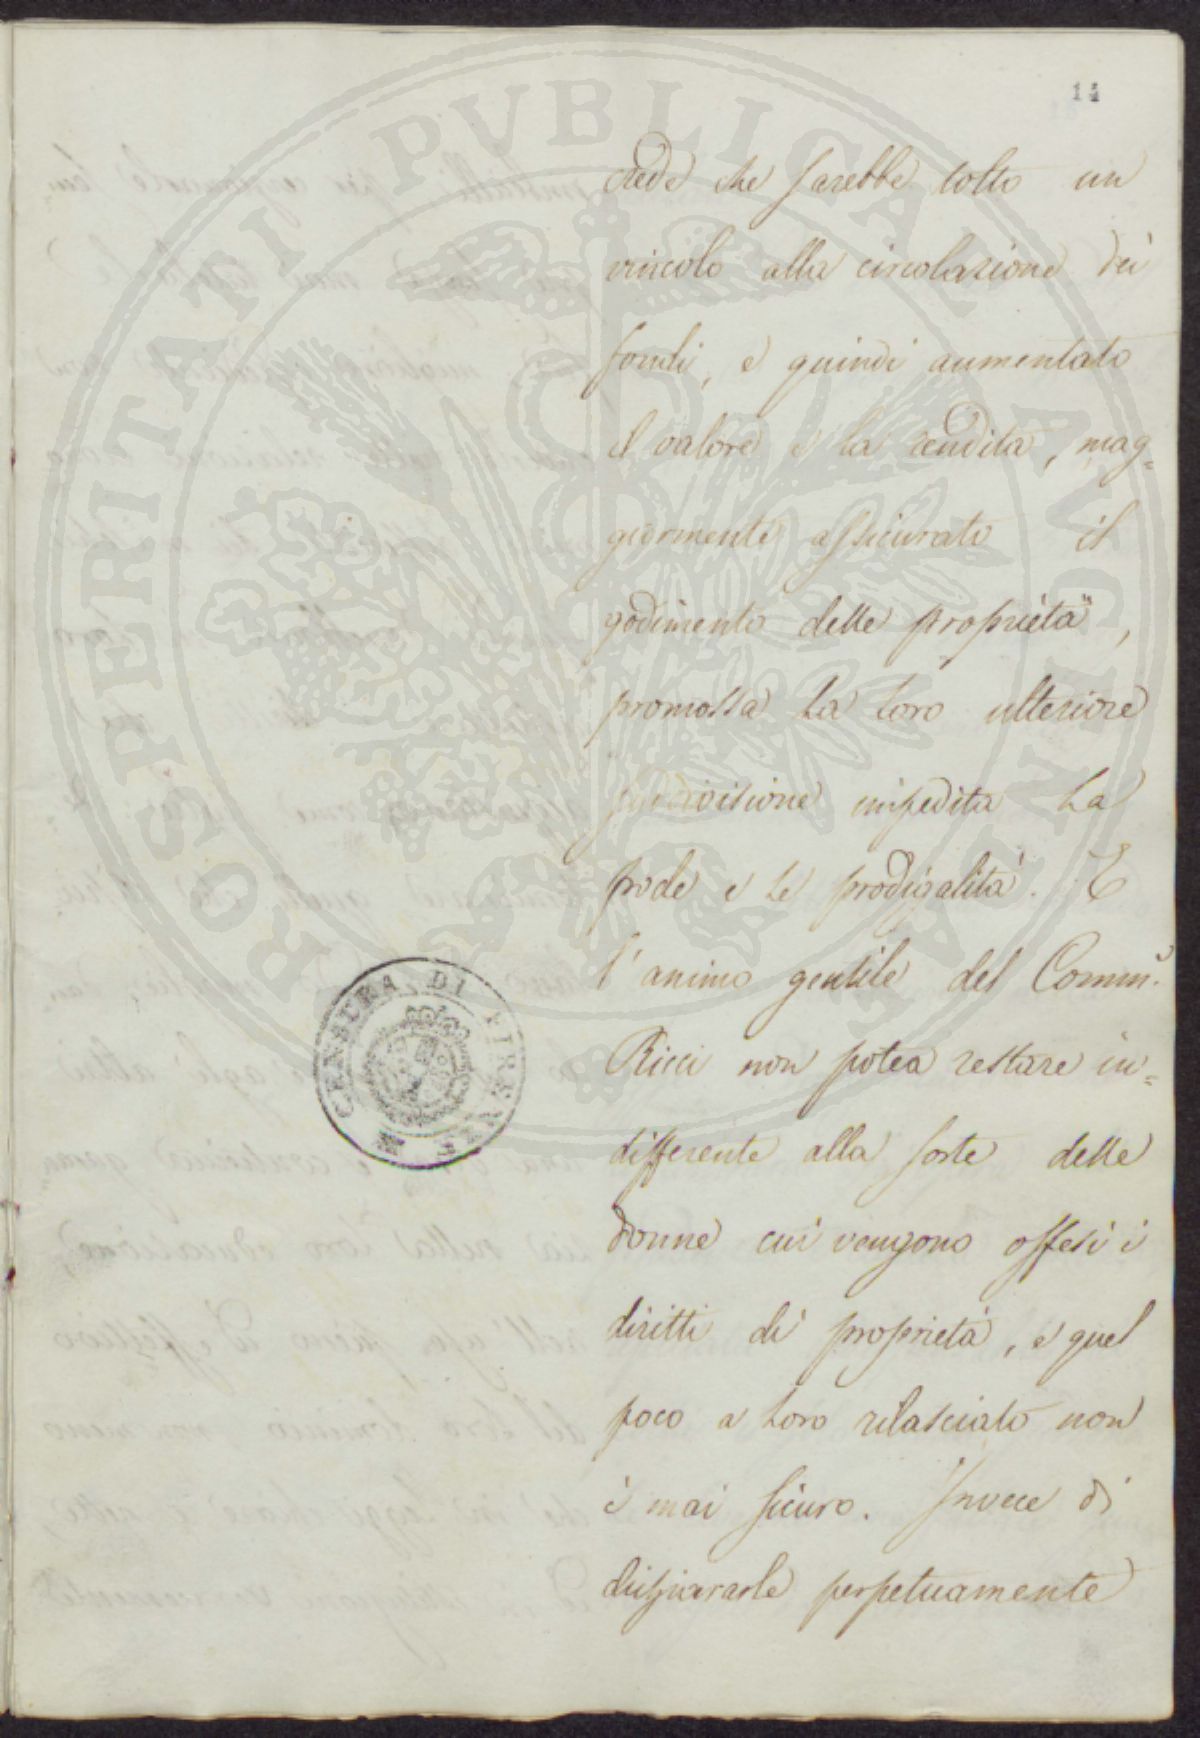 14
crede che sarebbe tolto un
vincolo alla circolazione dei
fondi, e quindi aumentato
il valore e la rendita, mag=
giormente assicurato il
godimento delle proprietà,
promossa la loro ulteriore
suddivisione impedita la
frode e le prodigalità. E
l'animo gentile del Comm.
Ricci non potea restare in=
differente alla sorte delle
donne cui vengono offesi i
diritti di proprietà, e quel
poco a loro rilasciato non
è mai sicuro. Invece di
perpetuamente
CENSURA DI FIRENZE
PROSPERITATI PUBLICAE AUGENDAE